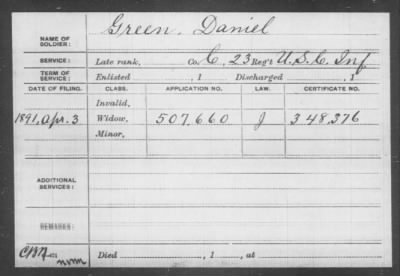 Green, Daniel
NAME OF SOLDIER:
SERVICE: Late rank, Co. C, 23 Reg't U.S.C. Inf
TERM OF SERVICE: Enlisted , 1 Discharged , 1
DATE OF FILING. CLASS. APPLICATION NO. LAW. CERTIFICATE NO.
Invalid,
1891, Apr. 3 Widow, 507,660 J 348,376
Minor,
ADDITIONAL SERVICES:
REMARKS:
Died , 1 , at